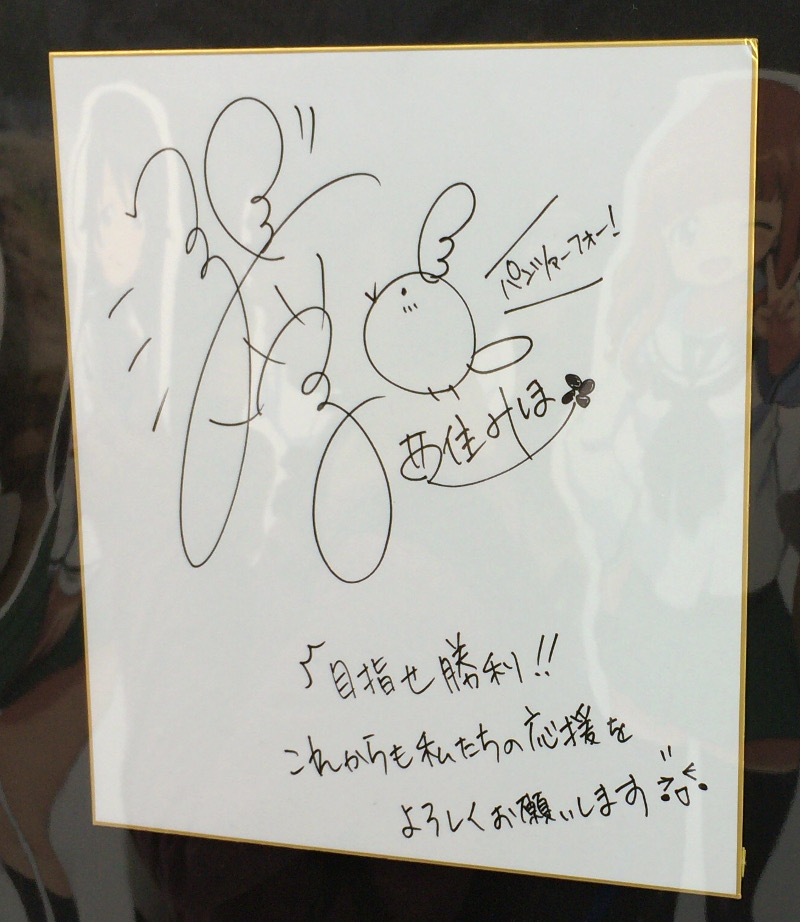 パンツァーフォー！
西住みほ
目指せ勝利!!
これからも私たちの応援を
よろしくお願いします